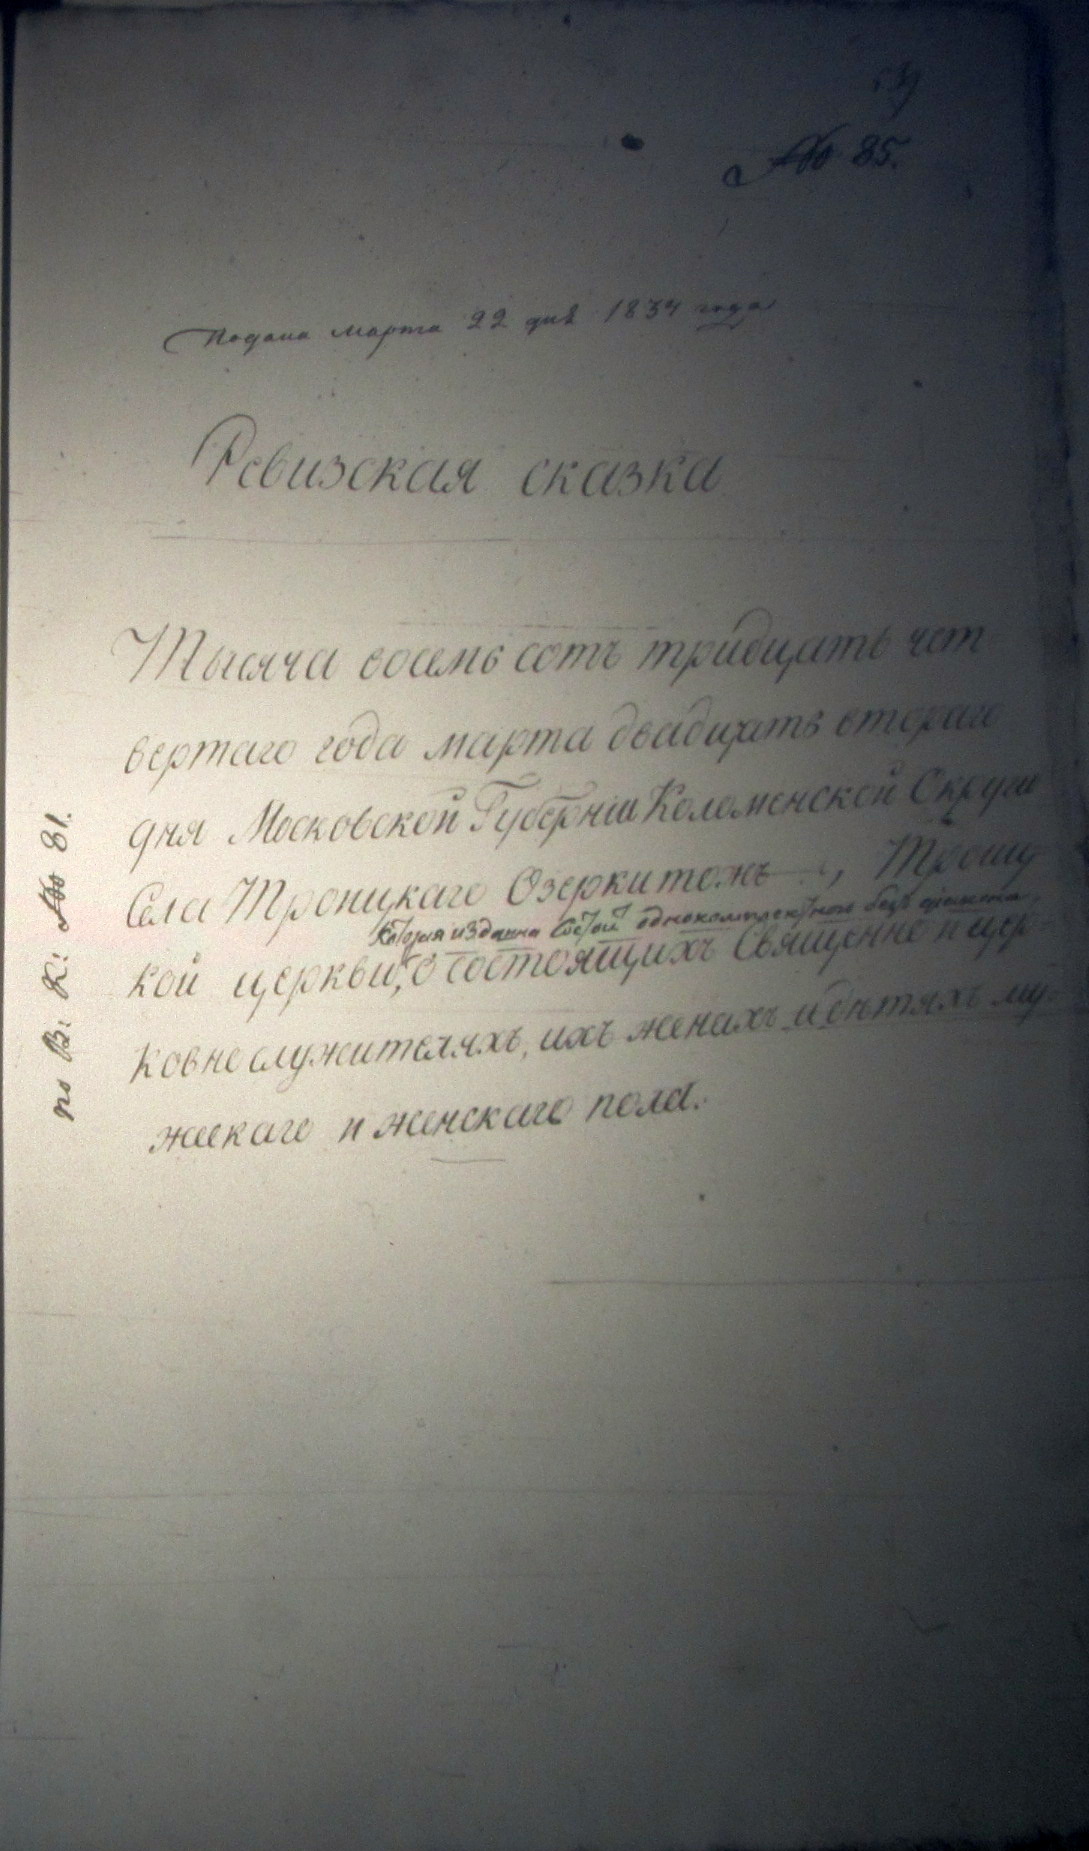 № 85.
Подана марта 22 дня 1834 года
Ревизская сказка
Тысяча восемь сотъ тридцать чет
вертаго года марта двадцать втораго
дня Московской Губерніи Коломенской Округи
Села Троицкаго Озерки тожъ, Троиц
которая издавна состоитъ однокомплектною безъ
кой церкви, о состоящихъ Священно и цер
ковнослужителяхъ, ихъ женахъ и детяхъ му
жескаго и женскаго пола.
по В: К: № 81.